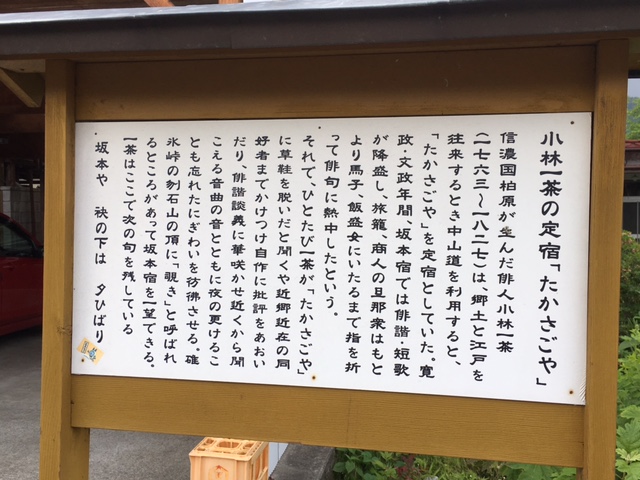 小林一茶の定宿「たかさごや」
信濃国柏原が生んだ俳人小林一茶
(一七六三〜一八二七)は、郷土と江戸を
往来するとき中山道を利用すると、
「たかさごや」を定宿としていた。寛
政・文政年間、坂本宿では俳諧・短歌
が降盛し、旅籠、商人の旦那衆はもと
より馬子、飯盛女にいたるまで指を折
って俳句に熱中したという。
それで、ひとたび一茶が「たかさごや」
に草鞋を脱いだと聞くや近郷近在の同
好者までかけつけ自作に批評をあおい
だり、俳諧談義に華咲かせ近くから聞
こえる音曲の音とともに夜の更けるこ
とも忘れたにぎわいを彷彿させる。碓
氷峠の刎石山の頂に「覗き」と呼ばれ
るところがあって坂本宿を一望できる。
一茶はここで次の句を残している
坂本や 袂の下は 夕ひばり